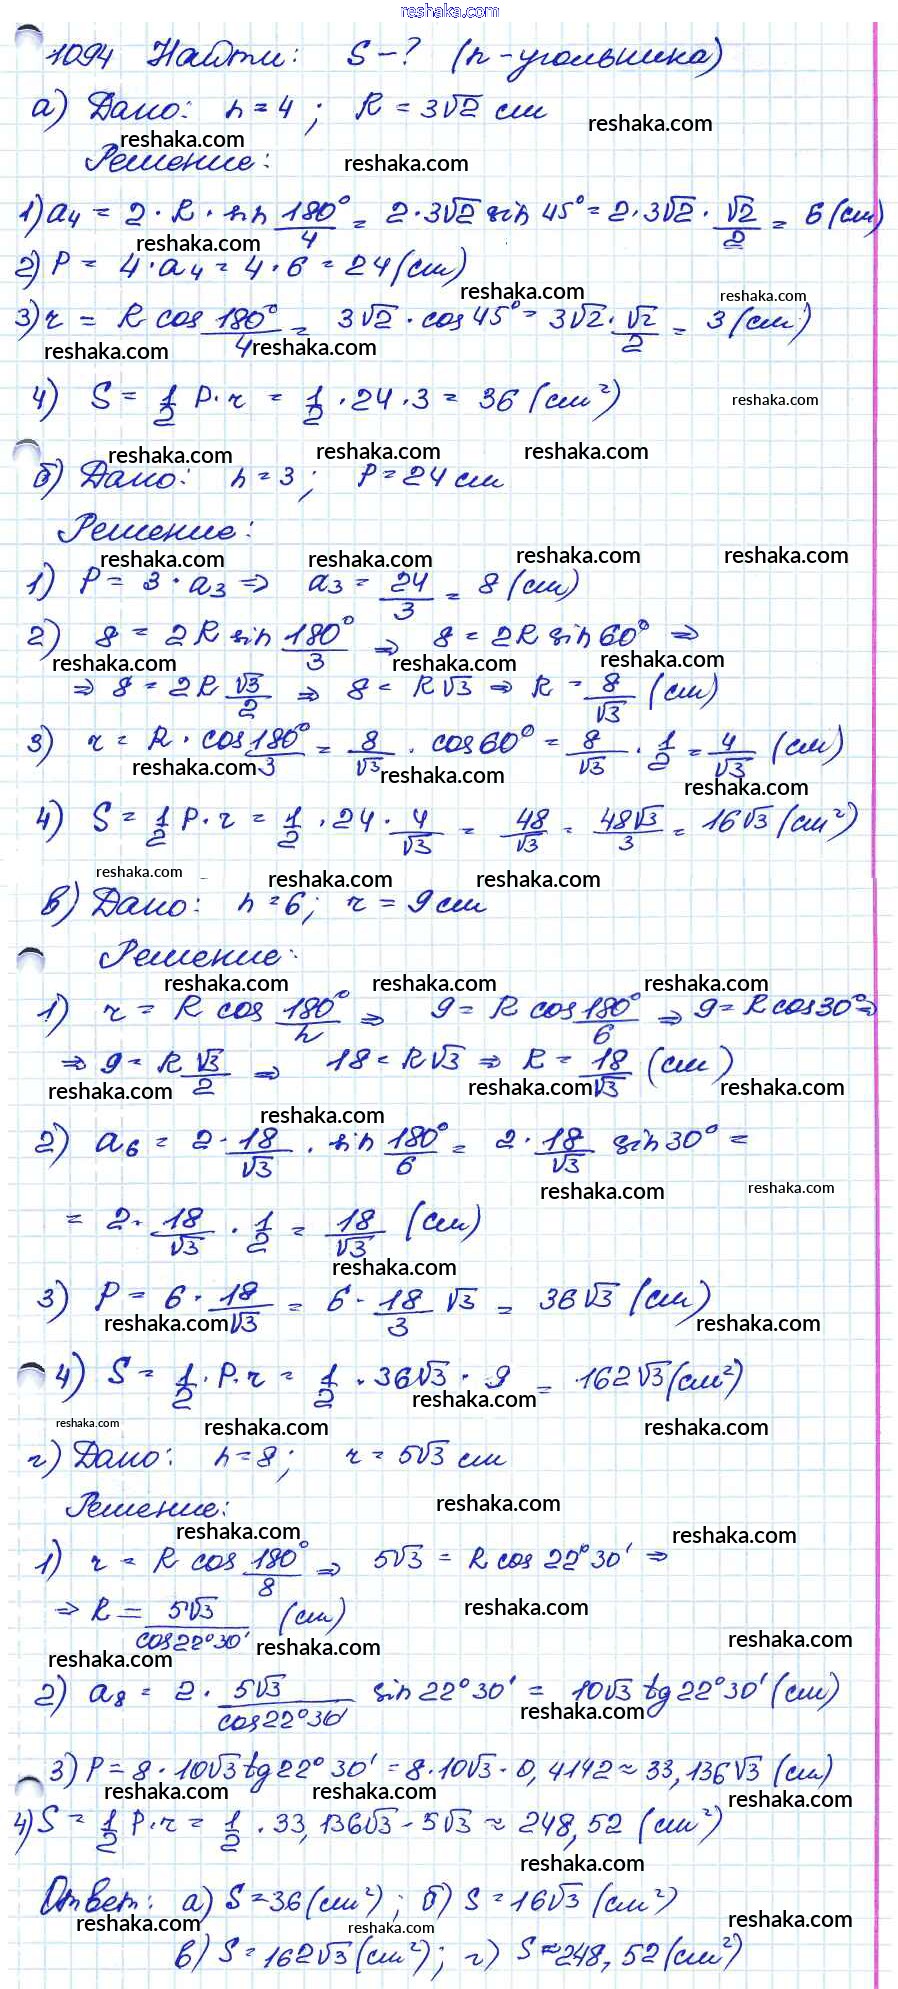 reshaka.com
1094 Найти: S - ? (n-угольника)
а) Дано: n = 4 ; R = 3√2 см
reshaka.com reshaka.com
Решение: reshaka.com
1) a₄ = 2 · R · sin 180°/4 = 2 · 3√2 sin 45° = 2 · 3√2 · √2/2 = 6 (см)
reshaka.com
2) P = 4 · a₄ = 4 · 6 = 24 (см)
reshaka.com reshaka.com
3) r = R cos 180°/4 = 3√2 · cos 45° = 3√2 · √2/2 = 3 (см)
reshaka.com reshaka.com
4) S = 1/2 P · r = 1/2 · 24 · 3 = 36 (см²) reshaka.com
reshaka.com reshaka.com reshaka.com
б) Дано: n = 3 ; P = 24 см
Решение:
reshaka.com reshaka.com reshaka.com reshaka.com
1) P = 3 · a₃ ⇒ a₃ = 24/3 = 8 (см)
2) 8 = 2R sin 180°/3 ⇒ 8 = 2R sin 60° ⇒
reshaka.com reshaka.com reshaka.com
⇒ 8 = 2R √3/2 ⇒ 8 = R√3 ⇒ R = 8/√3 (см)
3) r = R · cos 180°/3 = 8/√3 · cos 60° = 8/√3 · 1/2 = 4/√3 (см)
reshaka.com reshaka.com reshaka.com
4) S = 1/2 P · r = 1/2 · 24 · 4/√3 = 48/√3 = 48√3/3 = 16√3 (см²)
reshaka.com reshaka.com reshaka.com
в) Дано: n = 6 ; r = 9 см
Решение:
reshaka.com reshaka.com reshaka.com
1) r = R cos 180°/n ⇒ 9 = R cos 180°/6 ⇒ 9 = R cos 30° ⇒
⇒ 9 = R √3/2 ⇒ 18 = R√3 ⇒ R = 18/√3 (см)
reshaka.com reshaka.com reshaka.com
reshaka.com
2) a₆ = 2 · 18/√3 · sin 180°/6 = 2 · 18/√3 sin 30° =
reshaka.com reshaka.com
= 2 · 18/√3 · 1/2 = 18/√3 (см)
reshaka.com
3) P = 6 · 18/√3 = 6 · 18/3 √3 = 36√3 (см)
reshaka.com reshaka.com
4) S = 1/2 · P · r = 1/2 · 36√3 · 9 = 162√3 (см²)
reshaka.com
reshaka.com reshaka.com reshaka.com
г) Дано: n = 8 ; r = 5√3 см
Решение: reshaka.com
reshaka.com reshaka.com
1) r = R cos 180°/8 ⇒ 5√3 = R cos 22°30' ⇒
⇒ R = 5√3/cos 22°30' (см) reshaka.com
reshaka.com reshaka.com reshaka.com
2) a₈ = 2 · 5√3/cos 22°30' sin 22°30' = 10√3 tg 22°30' (см)
reshaka.com
3) P = 8 · 10√3 tg 22°30' = 8 · 10√3 · 0,4142 ≈ 33,136√3 (см)
reshaka.com reshaka.com reshaka.com
4) S = 1/2 P · r = 1/2 · 33,136√3 · 5√3 ≈ 248,52 (см²)
reshaka.com
Ответ: а) S = 36 (см²) ; б) S = 16√3 (см²)
reshaka.com reshaka.com reshaka.com
в) S = 162√3 (см²) ; г) S ≈ 248,52 (см²)